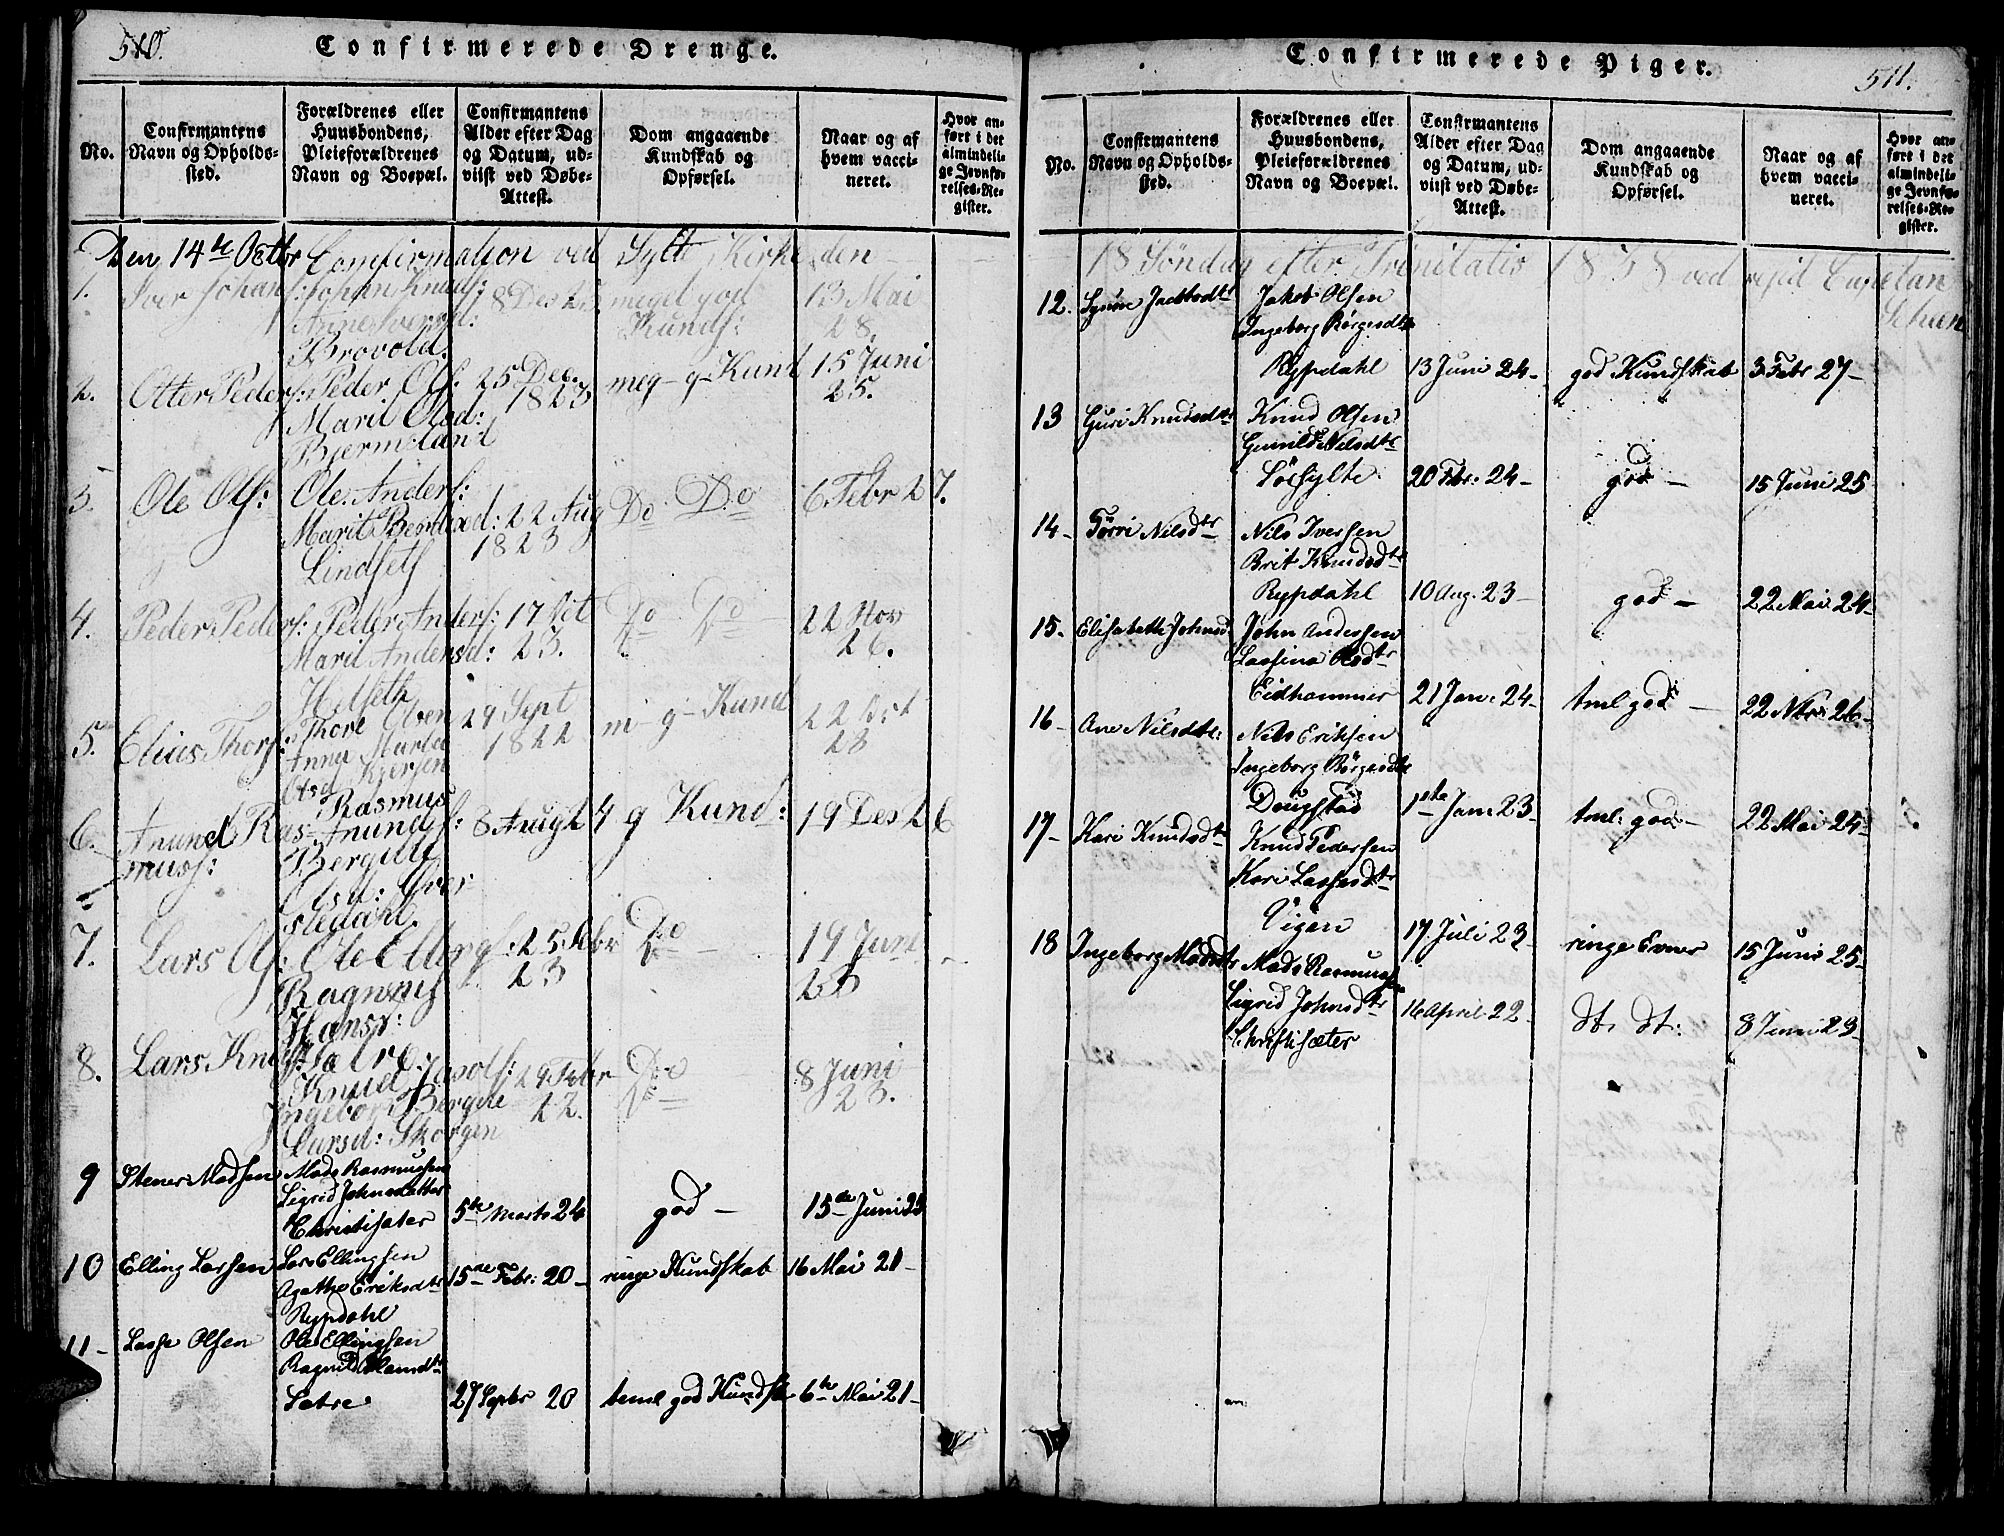 510.
Confirmerede Drenge.
No.
Confirmantens
Navn og Opholds-
sted.
Forældrenes eller
Huusbondens,
Pleieforældrenes
Navn og Boepæl.
Confirmantens
Alder efter Dag
og Datum, ud-
viist ved Døbe-
Attest.
Dom angaaende
Kundskab og
Opførsel.
Naar og af
hvem vacci-
neret.
Hvor an-
ført i det
almindeli-
ge Jevnfø-
relses-Re-
gister.
Den 14de Octbr Confirmation ved Sylte Kirke den
1. Iver Johans: Johan Knuds: 8 Des 23 meget god 13 Mai
Anne Iversd: Kunds: 28.
Brovold.
2. Otter Peders: Peder Ols: 25 Dec. meg- g- Kund 15 Juni
Marit Olsd: 1823 25.
Bjermeland
3. Ole Ols: Ole Anders: 22 Aug Do Do 6 Febr 27.
Marit 1823
Lindseth
4. Peder Peders: Peder Anders: 17 Oct Do Do 22 Nov
Marit Andersd: 23. 26.
Helseth
5. Elias Thors: Thore Olsen 29 Sept m- g- Kund 22 Oct
Anne Marta 1822 23
Olsd
6. Anund Ras- Rasmus 8 Aug 24 g Kund: 19 Des 26
muss: Anunds:
Olsd:
7. Lars Ols: Ole Ellings: 25 Febr Do 19 Juni
23
Hansd:
8. Lars Knuds: Sætre. 29 Febr Do 8 Juni
Knud 22. 23.
Ingebor
Larsd: Skorgen
9 Stener Madsen Mads Rasmussen
Sigrid Johnsdatter
Christisæter 5te Marts 24 god - 15de Juni 25
10 Elling Larsen Lars Ellingsen
Agathe Eriksdtr 15ne Febr: 20- ringe Kundskab 16 Mai 21-
Rypdahl
11- Lasse Olsen Ole Ellingsen
Ragnild
Sætre 27 Septbr 20 teml god Kundsk 6te Mai 21-
Confirmerede Piger.
511.
No.
Confirmantens
Navn og Opholds-
sted.
Forældrenes eller
Huusbondens,
Pleieforældrenes
Navn og Boepæl.
Confirmantens
Alder efter Dag
og Datum, ud-
viist ved Døbe-
Attest.
Dom angaaende
Kundskab og
Opførsel.
Naar og af
hvem vacci-
neret.
Hvor an-
ført i det
almindeli-
ge Jevnfø-
relses-Re-
gister.
18 Søndag efter Trinitatis 1838 ved resid Capelan
12. Synve Jacobsdtr Jakob Olsen
Ingeborg Børgesdtr
Rypdahl 13 Juni 24- god Kundskab 3 Febr 27-
13 Guri Knudsdtr Knud Olsen
Gunild Nilsdtr
Løssylte 20 Febr: 24- god - 15 Juni 25
14- Torri Nilsdtr Nils Iversen
Brit Knudsdtr
Rypdahl 10 Aug. 23- god - 22 Mai 24-
15. Elisabeth Johnsd John Andersen
Lassina Olsdtr
Eidhammer 21 Jan: 24- tml god - 22 Nbr: 26-
16- Ane Nilsdtr: Nils Eriksen
Ingeborg Børgesdtr
Dougstad 1ste Jan: 23- tml: god - 22 Mai 24-
17- Kari Knudsdtr Knud Pedersen
Kari Lassesdtr
Vigen 17 Juli 23- ringe Evner 15 Juni 25-
18 Ingeborg Madsdtr Mads Rasmussen
Sigrid Johnsdtr 16 April 22- dt. dt: 8 Juni 23-
Christisæter